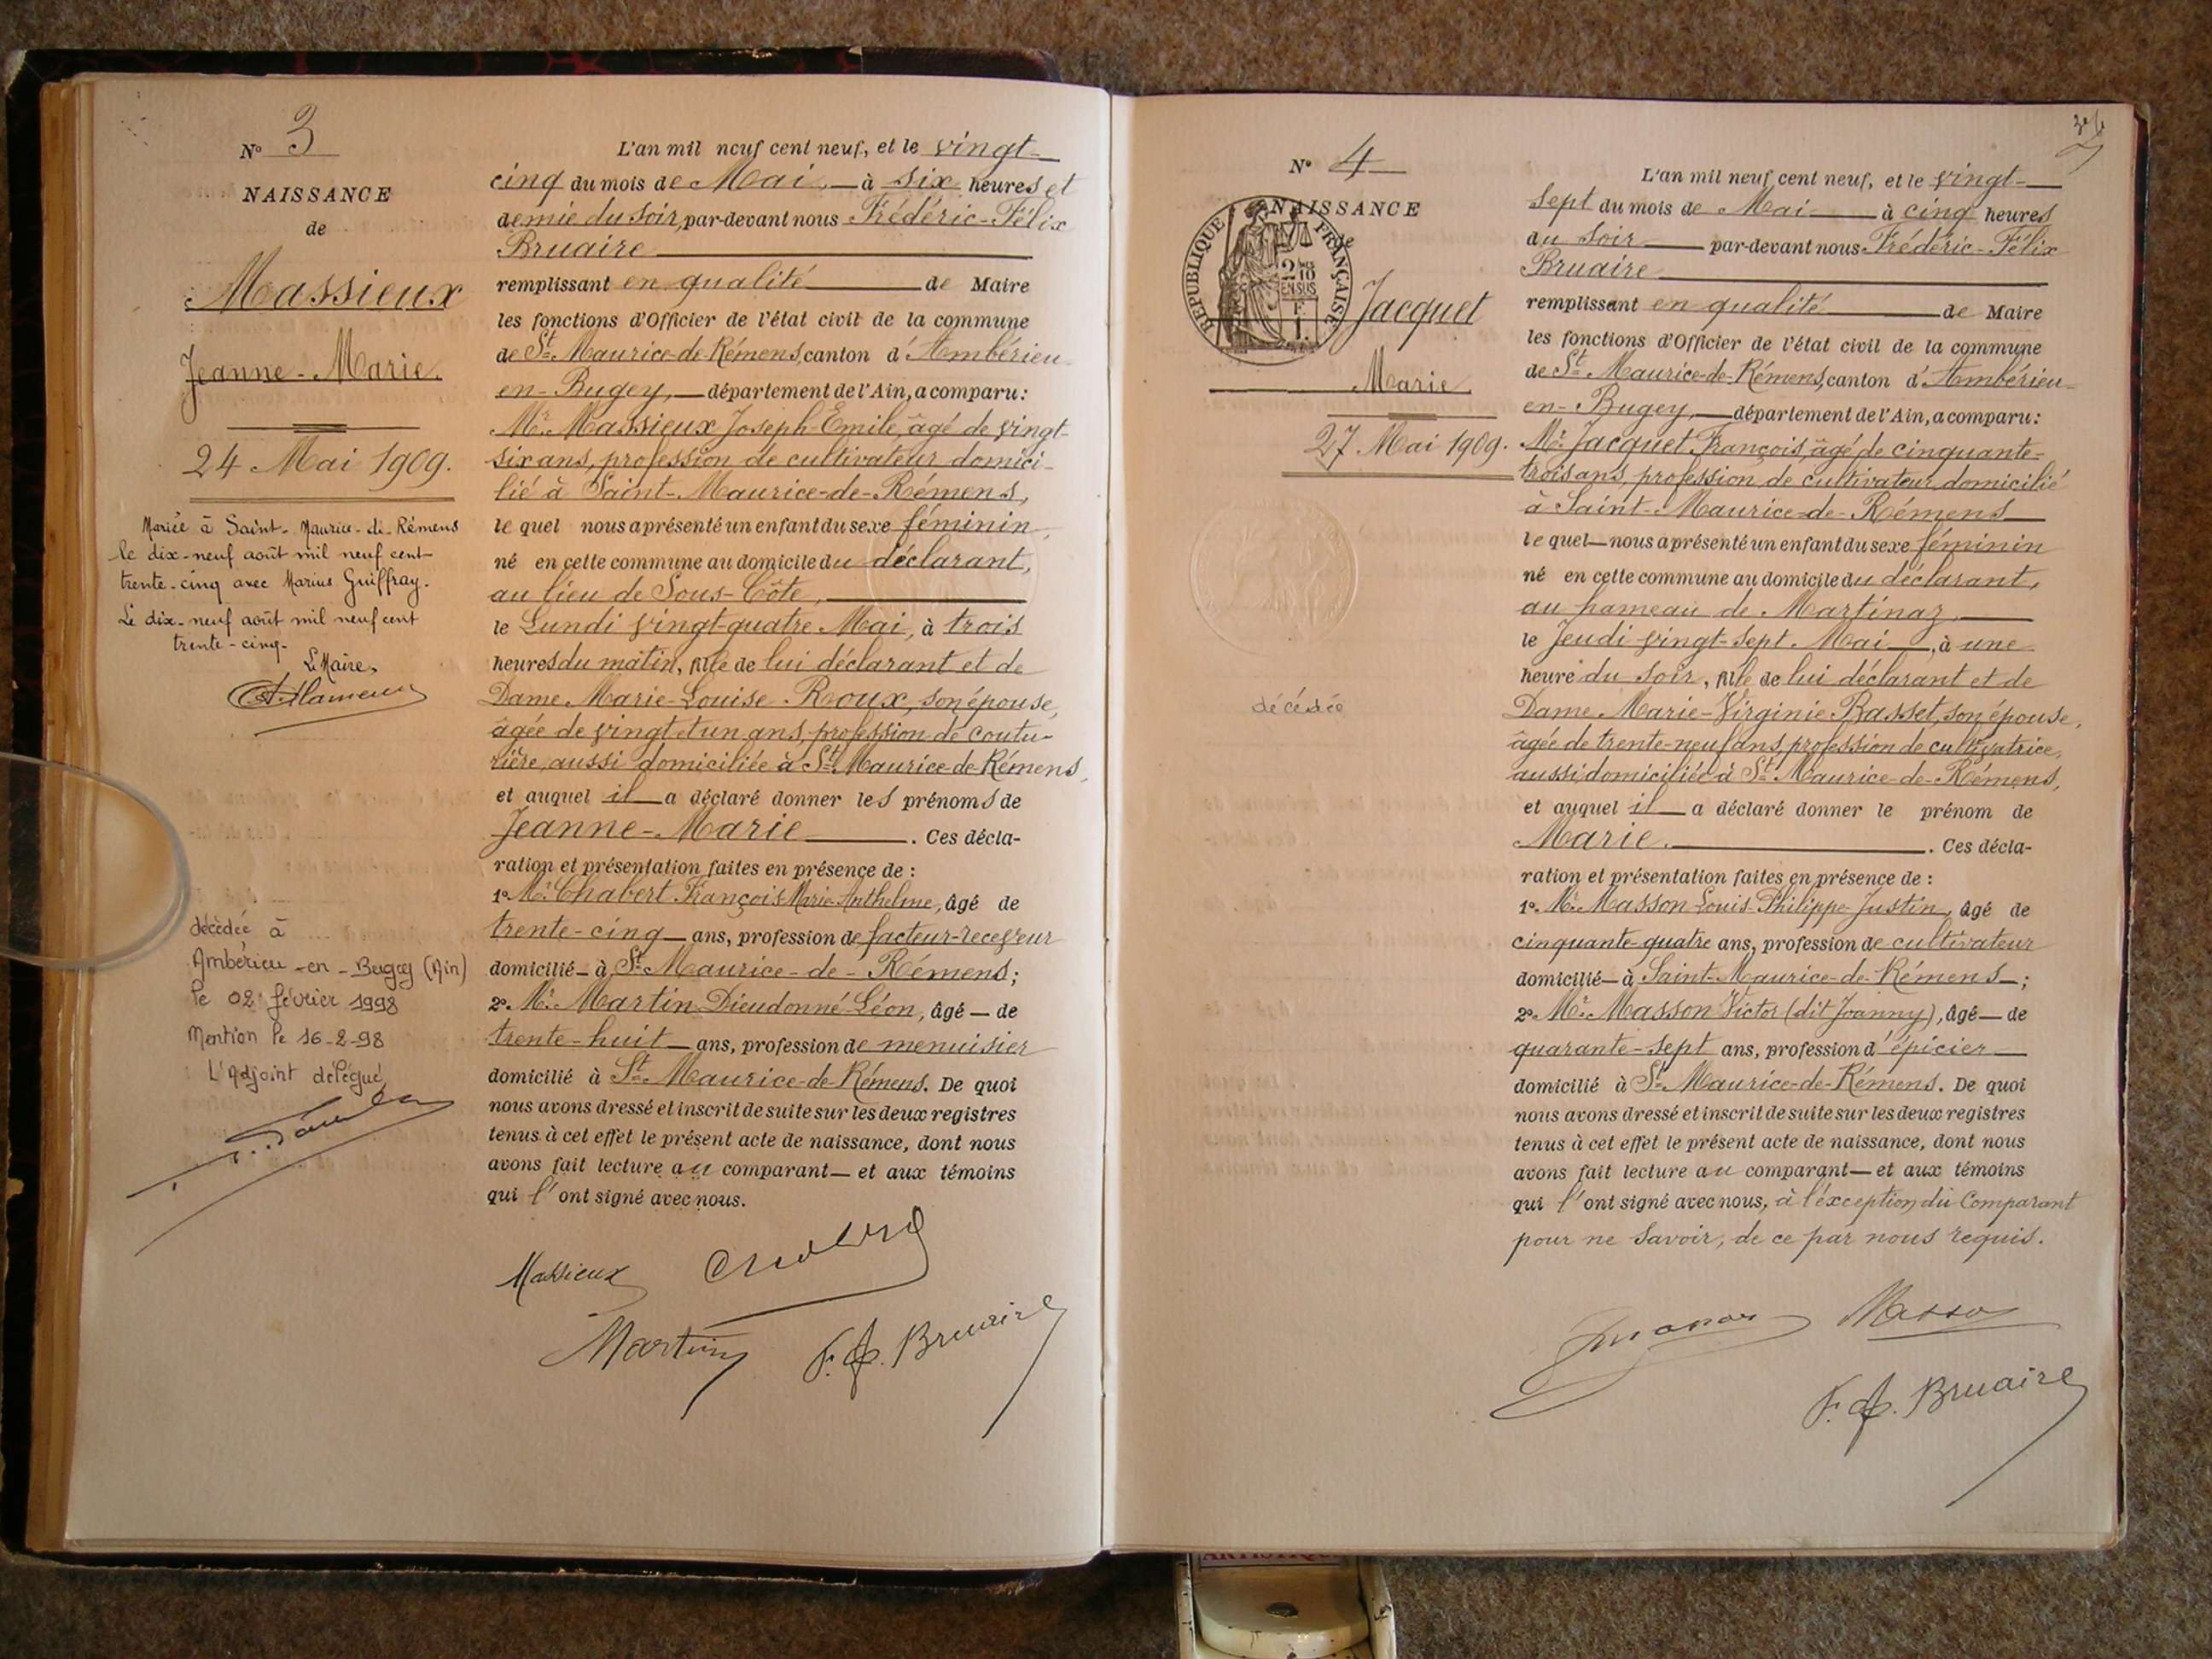 Nº 3
NAISSANCE
de
Massieux
Jeanne-Marie
24 Mai 1909.
Mariée à Saint-Maurice-de-Rémens
le dix-neuf août mil neuf cent
trente-cinq avec Marius Guiffray.
Le dix-neuf août mil neuf cent
trente-cinq-
Le Maire,
décédée à
Ambérieu-en-Bugey (Ain)
le 02 février 1998
Mention le 16-2-98
L'Adjoint délégué
L'an mil neuf cent neuf, et le vingt-
cinq du mois de Mai, à six heures et
demie du soir, par-devant nous Frédéric-Félix
Bruaire
remplissant en qualité de Maire
les fonctions d'Officier de l'état civil de la commune
de St Maurice-de-Rémens, canton d'Ambérieu-
en-Bugey, département de l'Ain, a comparu:
Mr. Massieux Joseph-Emile, âgé de vingt-
six ans, profession de cultivateur domici-
lié à Saint-Maurice-de-Rémens,
le quel nous a présenté un enfant du sexe féminin,
né en cette commune au domicile du déclarant,
au lieu de Sous-Côte,
le Lundi vingt-quatre Mai, à trois
heures du matin, fille de lui déclarant et de
Dame Marie-Louise Roux, son épouse,
âgée de vingt et un ans, profession de coutu-
rière, aussi domiciliée à St Maurice-de-Rémens,
et auquel il a déclaré donner les prénoms de
Jeanne-Marie. Ces décla-
ration et présentation faites en présence de :
1º Mr. Chabert François Marie Anthelme, âgé de
trente-cinq ans, profession de facteur-receveur
domicilié à St Maurice-de-Rémens;
2º. Mr. Martin Dieudonné-Léon, âgé de
trente-huit ans, profession de menuisier
domicilié à St Maurice-de-Rémens. De quoi
nous avons dressé et inscrit de suite sur les deux registres
tenus à cet effet le présent acte de naissance, dont nous
avons fait lecture au comparant et aux témoins
qui l'ont signé avec nous.
Massieux
Martin F. f. Bruaire
Nº 4
NAISSANCE
de
RÉPUBLIQUE FRANÇAISE
Jacquet
Marie
27 Mai 1909.
décédée
L'an mil neuf cent neuf, et le vingt-
sept du mois de Mai à cinq heures
du soir par-devant nous Frédéric-Félix
Bruaire
remplissant en qualité de Maire
les fonctions d'Officier de l'état civil de la commune
de St Maurice-de-Rémens, canton d'Ambérieu-
en-Bugey, département de l'Ain, a comparu:
Mr. Jacquet François, âgé de cinquante-
trois ans, profession de cultivateur domicilié
à Saint-Maurice-de-Rémens
le quel nous a présenté un enfant du sexe féminin
né en cette commune au domicile du déclarant,
au hameau de Martinaz,
le Jeudi vingt-sept Mai, à une
heure du soir, fille de lui déclarant et de
Dame Marie-Virginie Basset, son épouse,
âgée de trente-neuf ans, profession de cultivatrice,
aussi domiciliée à St Maurice-de-Rémens,
et auquel il a déclaré donner le prénom de
Marie. Ces décla-
ration et présentation faites en présence de :
1º. Mr. Masson Louis-Philippe-Justin, âgé de
cinquante-quatre ans, profession de cultivateur
domicilié à Saint-Maurice-de-Rémens;
2º Mr. Masson Victor (dit Joanny), âgé de
quarante-sept ans, profession d'épicier
domicilié à St Maurice-de-Rémens. De quoi
nous avons dressé et inscrit de suite sur les deux registres
tenus à cet effet le présent acte de naissance, dont nous
avons fait lecture au comparant et aux témoins
qui l'ont signé avec nous, à l'exception du Comparant
pour ne savoir, de ce par nous requis.
Masson
F. f. Bruaire